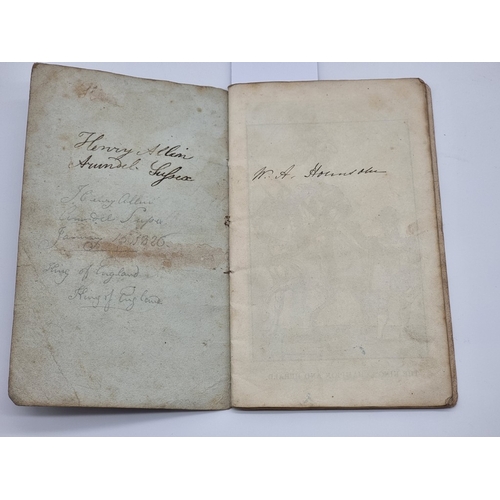 Henry Allin
Arundel Sussex
Henry Allin
Arundel Sussex
January 1826
King of England
King of England
W. A.